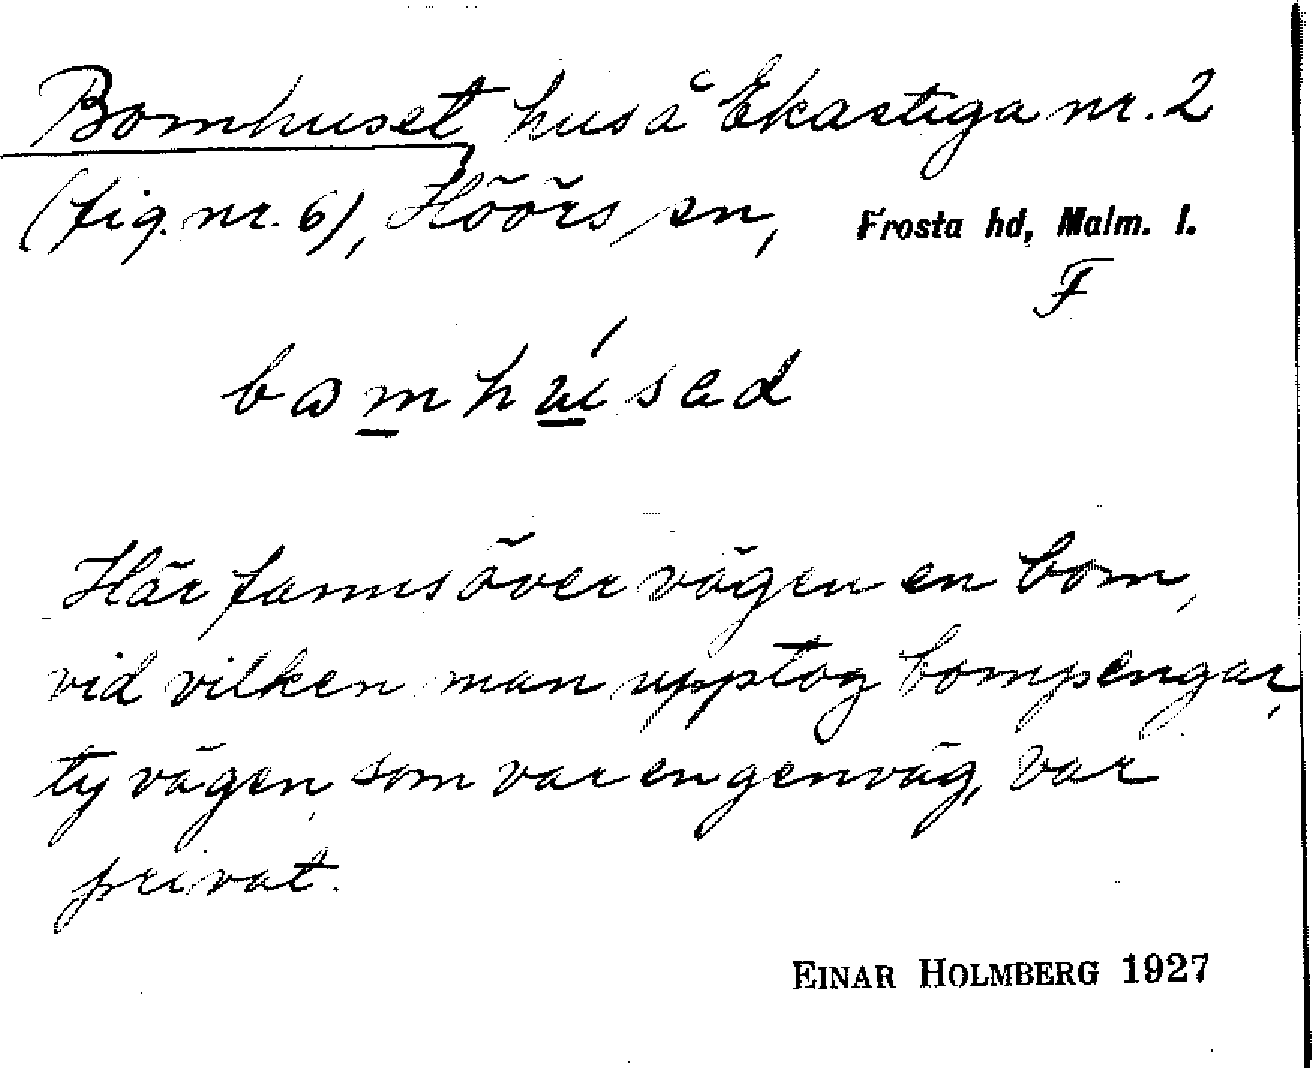 Bomhuset, hus å Ekastiga nr. 2
(fig. nr. 6), Höörs sn, Frosta hd, Malm. l.
F
bɷmhúsad
Här fanns över vägen en bom,
vid vilken man upptog bompengar,
ty vägen, som var en genväg, var
privat.
EINAR HOLMBERG 1927